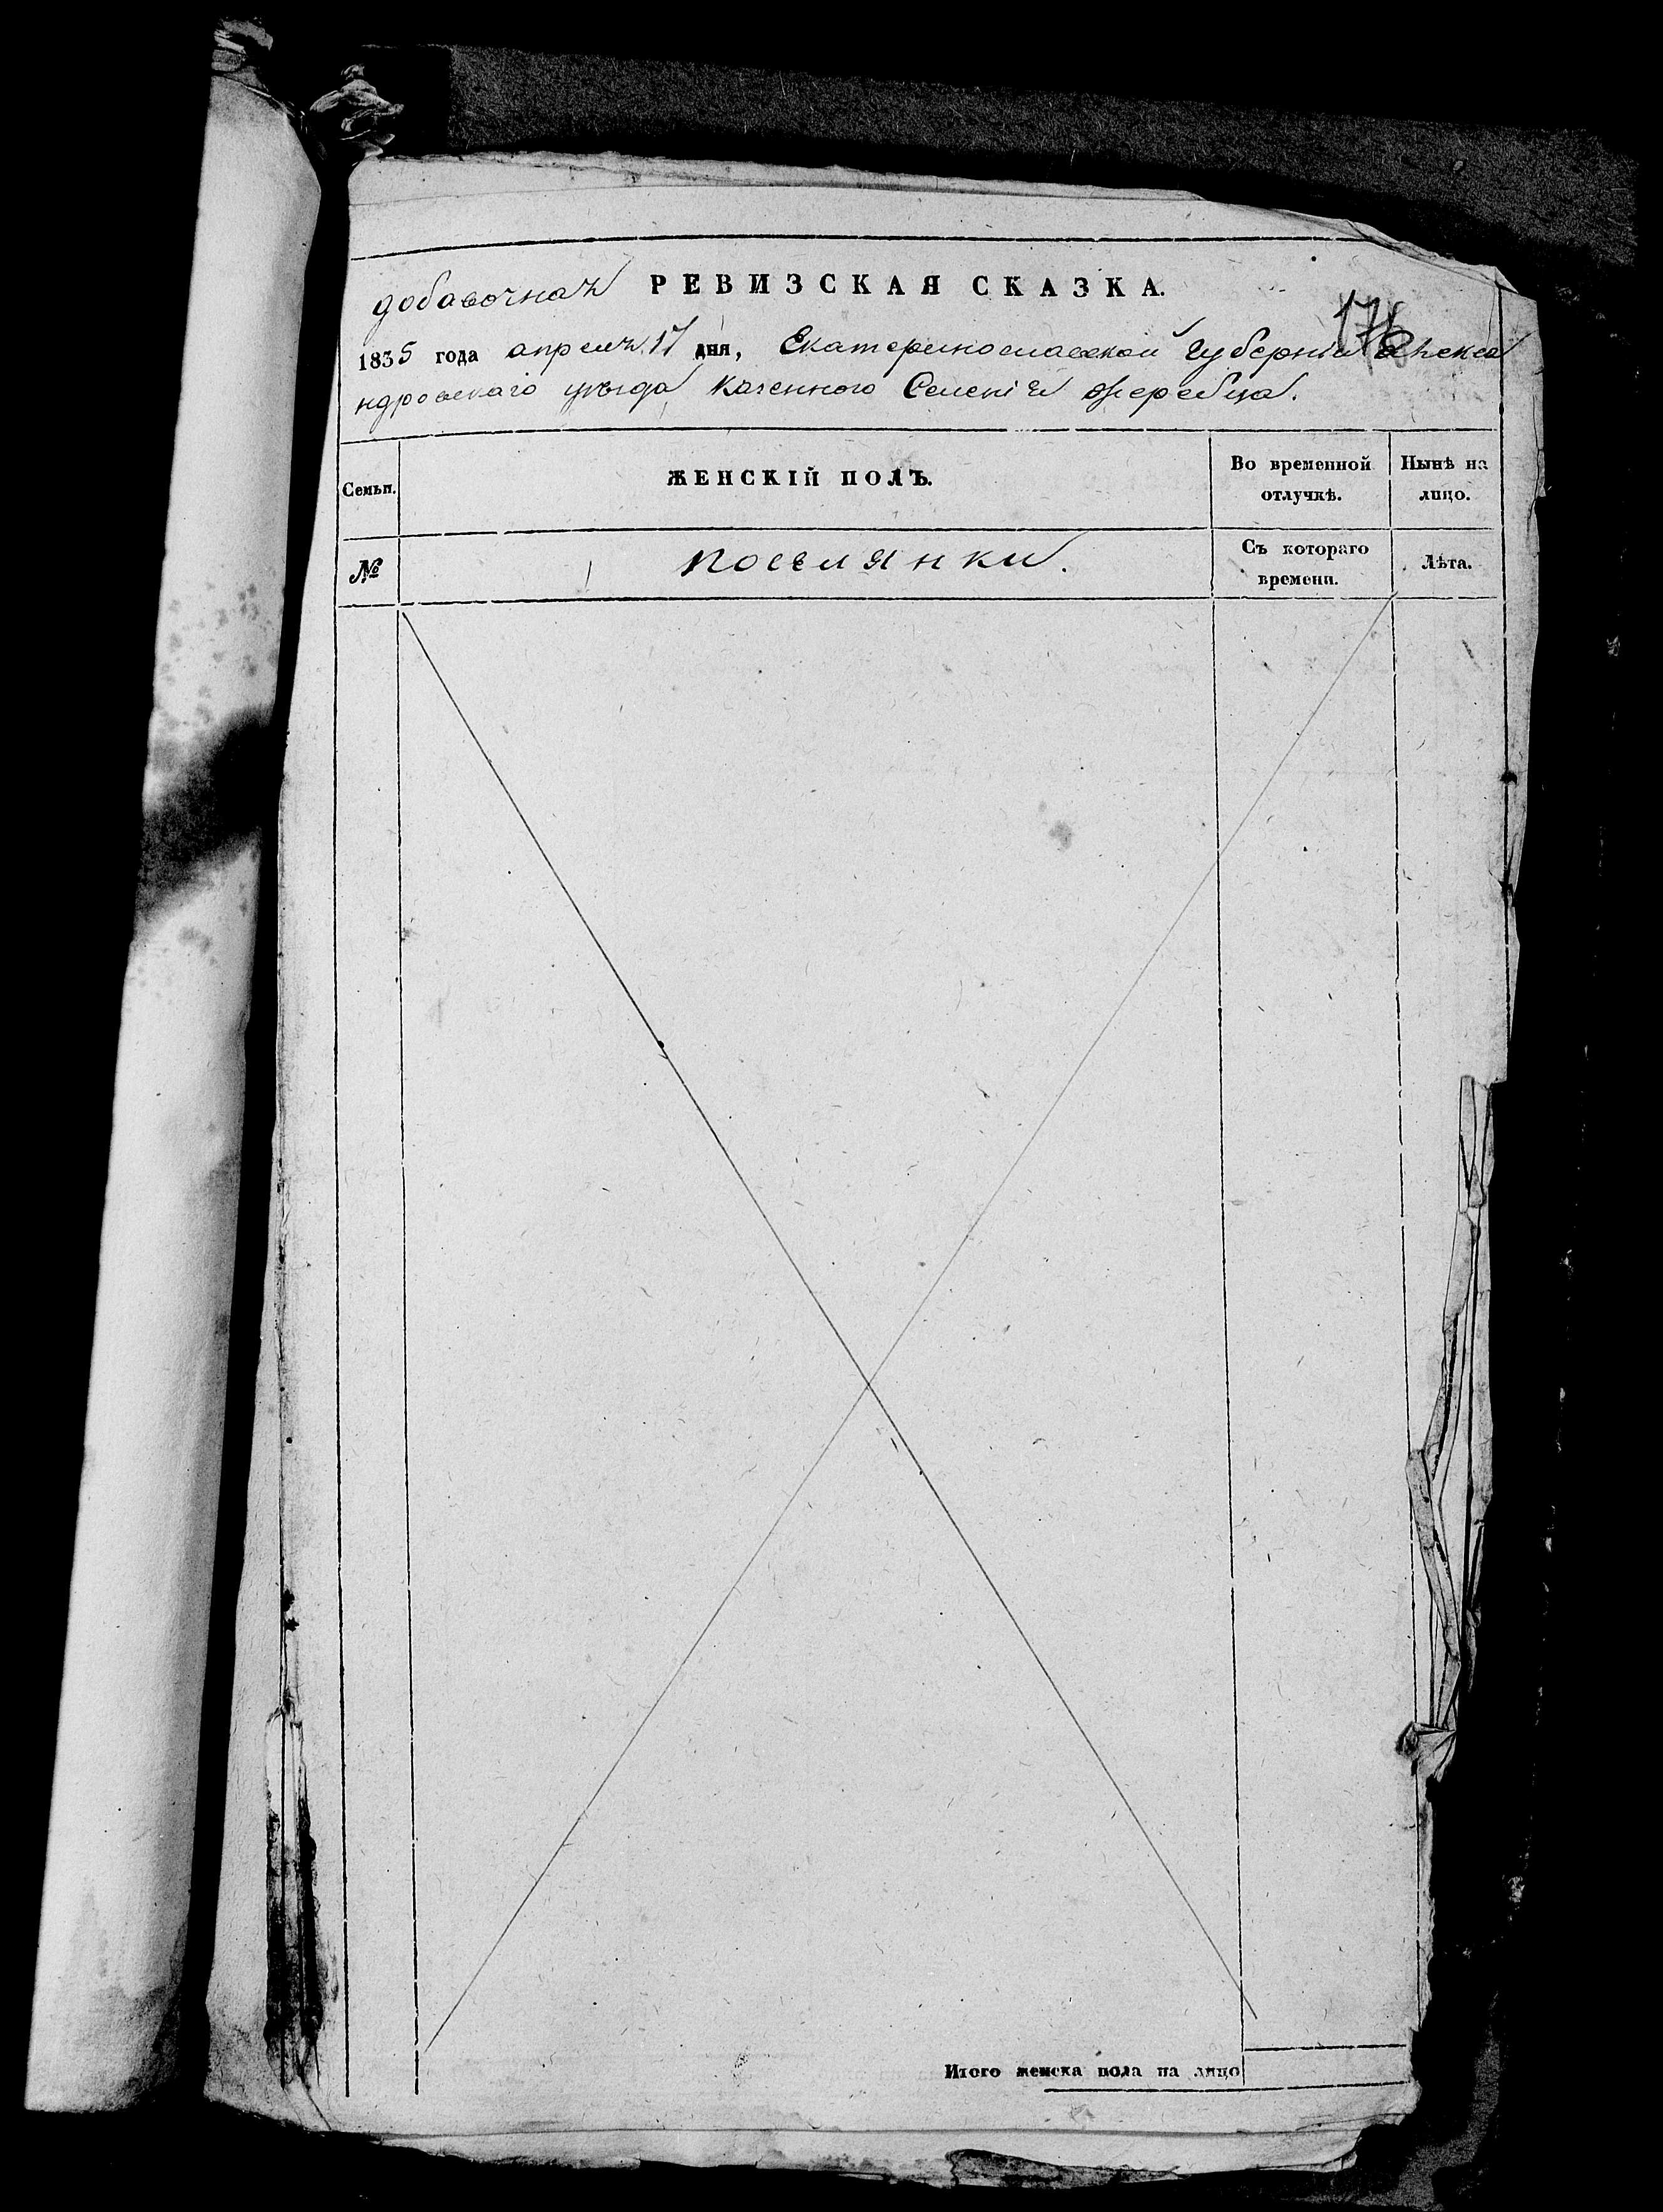 добавочная РЕВИЗСКАЯ СКАЗКА.
176
1835 года апреля 17 дня, Екатеринославской Губернии Алекса
ндровскаго уѣзда Казенного Селенія Жеребца.
Семьи. ЖЕНСКІЙ ПОЛЪ. Во временной отлучкѣ. Нынѣ на лицо.
№ поселянки. Съ котораго времени. Лѣта.
Итого женска пола на лицо